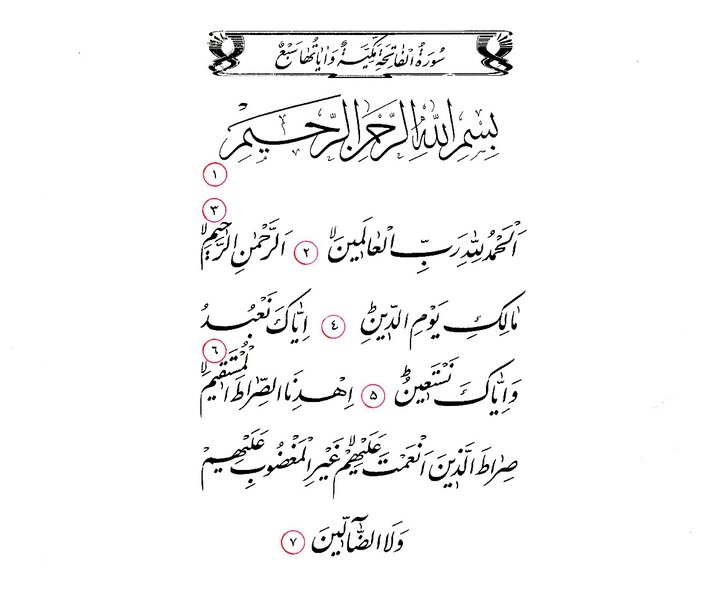 سُورَةُ الْفَاتِحَةِ مَكِّيَّةٌ وَاٰيَاتُهَا سَبْعٌ
بِسْمِ اللّٰهِ الرَّحْمٰنِ الرَّحِيْمِ
۱
اَلْحَمْدُ لِلّٰهِ رَبِّ الْعَالَمِيْنَ ۙ ۲ اَلرَّحْمٰنِ الرَّحِيْمِ ۙ ۳
مَالِكِ يَوْمِ الدِّيْنِ ؕ ٤ اِيَّاكَ نَعْبُدُ
وَاِيَّاكَ نَسْتَعِيْنُ ؕ ۵ اِهْدِنَا الصِّرَاطَ الْمُسْتَقِيْمَ ۙ ٦
صِرَاطَ الَّذِيْنَ اَنْعَمْتَ عَلَيْهِمْ ۙ غَيْرِ الْمَغْضُوْبِ عَلَيْهِمْ
وَلَا الضَّآلِّيْنَ ۷